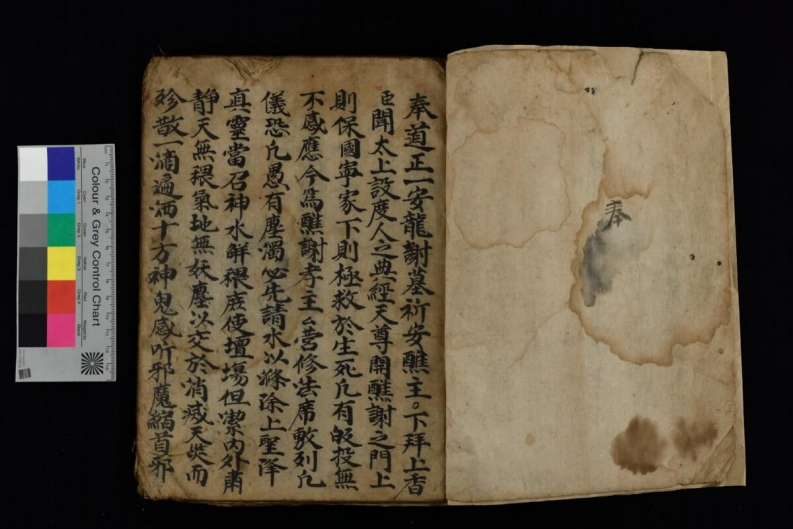 奉
奉道正一安龍謝墓祈安醮主。下拜上香
臣聞太上設度人之典經天尊開醮謝之門上
則保國寧家下則極救於生死凡有皈投無
不感應今爲醮謝孝主厶營修法席敷列凡
儀恐凡愚有塵濁必先請水以滌除上聖降
真靈當召神水解穢庶使壇場但潔內外肅
靜天無穢氣地無妖塵以交於消滅天災而
殄散一滴遍洒十方神鬼感吖邪魔縮首邪
Colour & Grey Control Chart